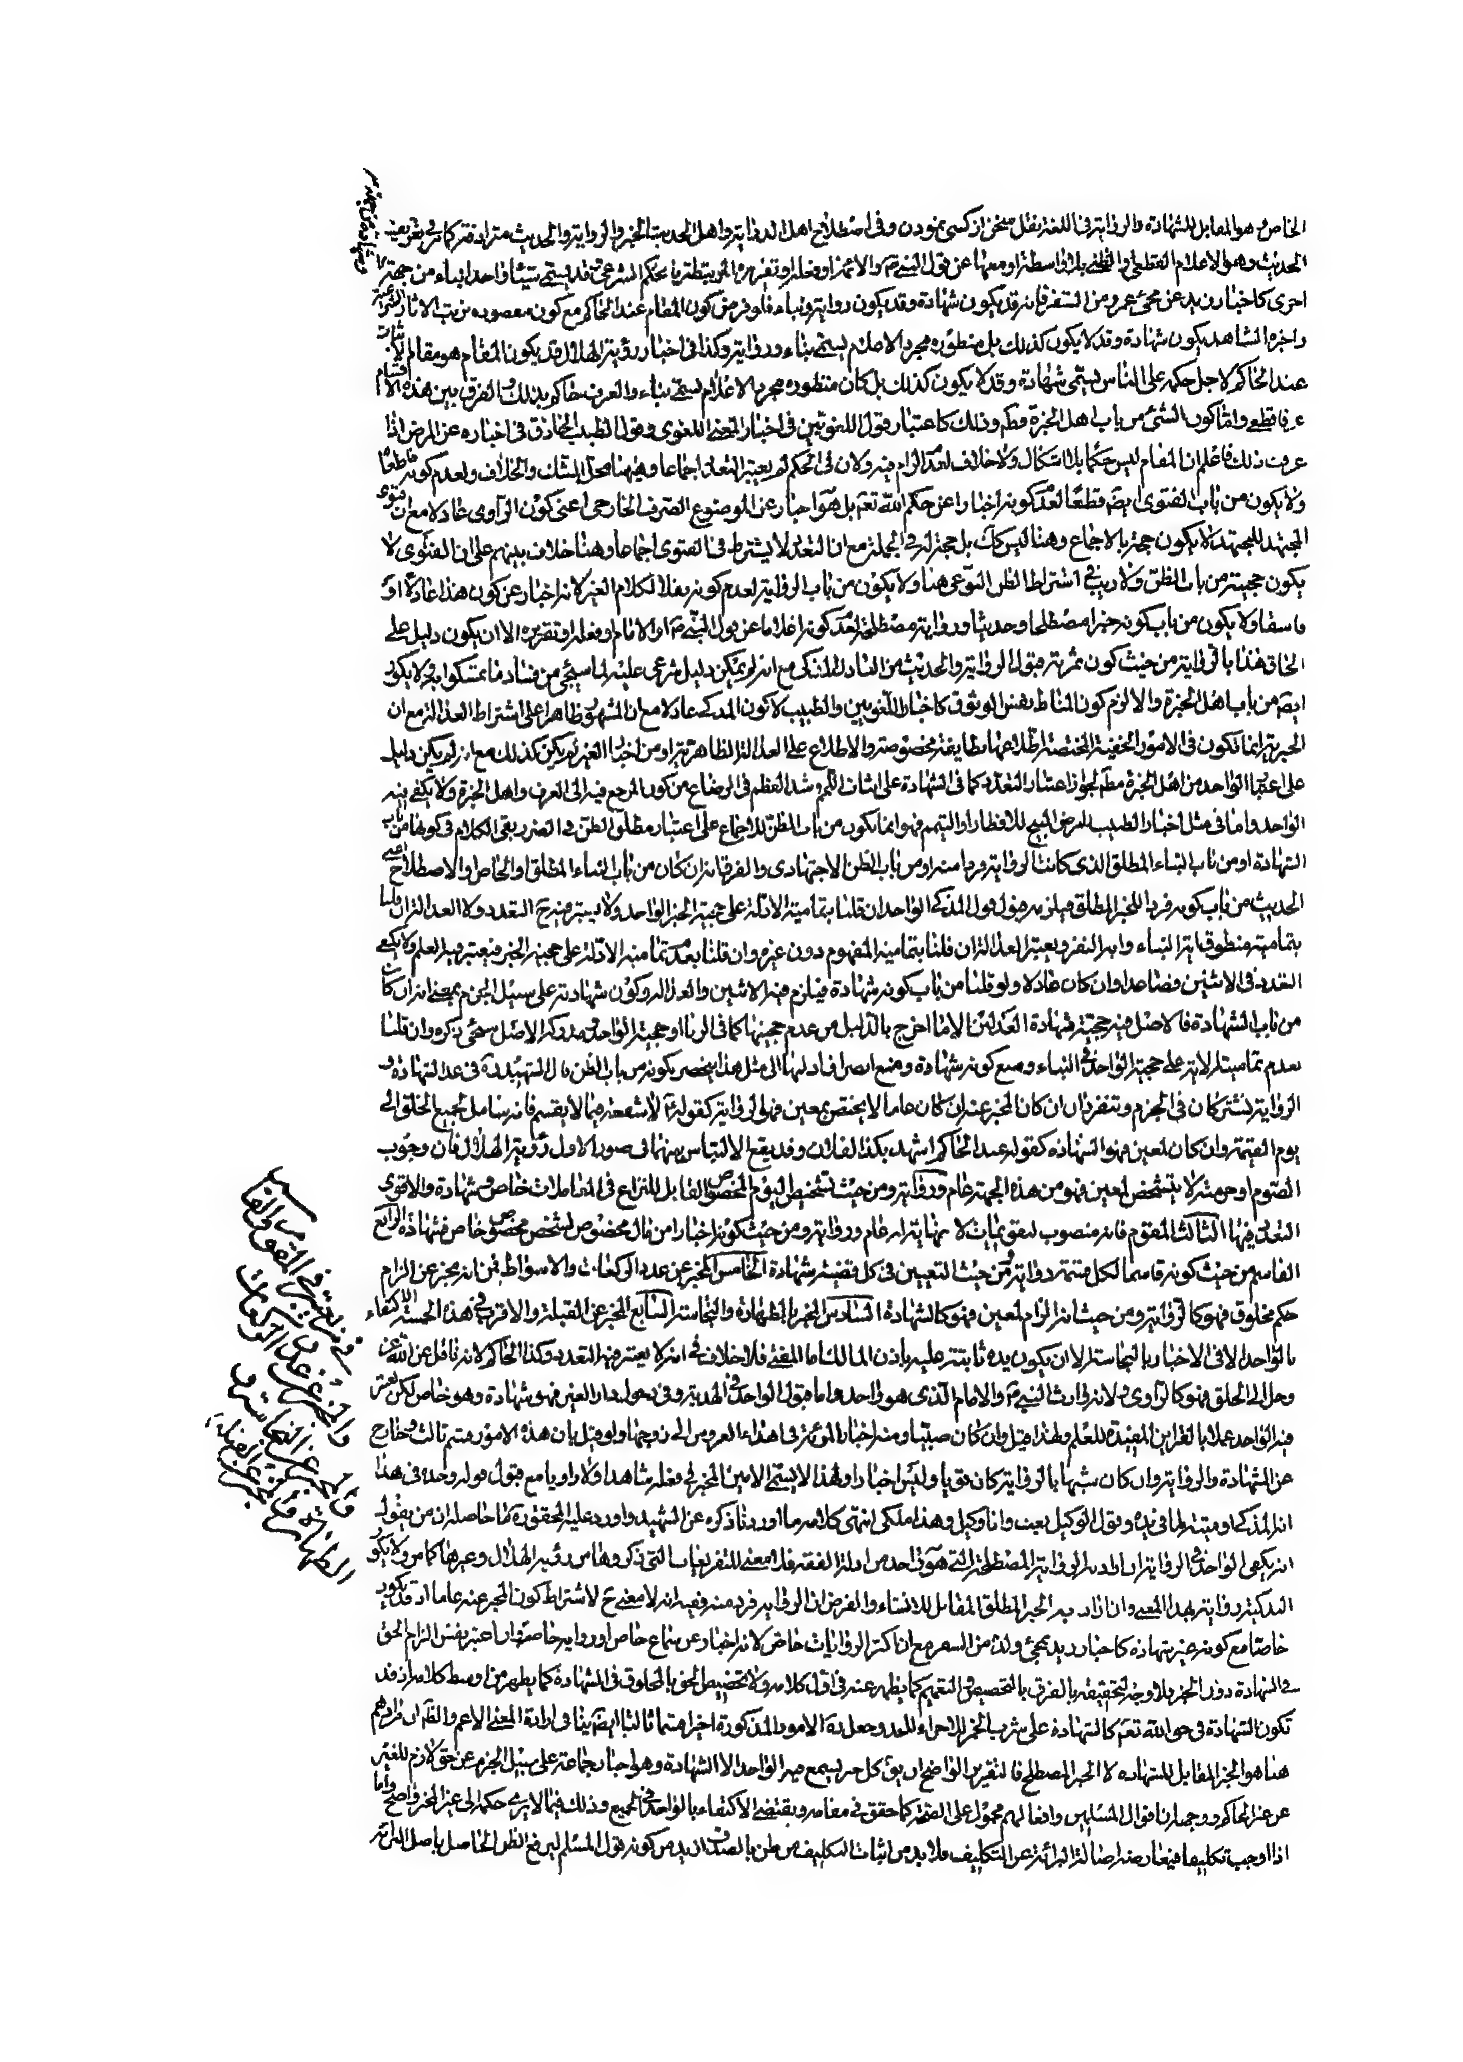 الخاص وهو المقابل للشهادة والرواية في اللغة نقل سخن از كسى نمودن وفي اصطلاح اهل الدراية واهل الحديث الخبر والرواية والحديث مترادفة كما في تعريف
الحديث وهو الاعلام القطعي او الظني بلا واسطة او معها عن قول النبي ص والائمة او فعله او تقريره بحكم الشرعي فقد يسمى شيئا واحدا نباء من جهة
اخرى كاخبار زيد عن مجئ عمرو من السفر فانه قد يكون شهادة وقد يكون رواية ونباء فلو فرض كون المقام عند الحاكم مع كون مقصوده ترتب الاثار
واخبره الشاهد يكون شهادة وقد لا يكون كذلك بل منظوره مجرد الاعلام يسمى نباء ورواية وكذا في اخبار رؤية الهلال قد يكون المقام هو مقام الاثبات
عند الحاكم لاجل حكمه على الناس يسمى شهادة وقد لا يكون كذلك بل كان منظوره مجرد الاعلام يسمى نباء والعرف حاكم بذلك والفرق بين هذه الاقسام
عرفا قطعي واما كون الشئ من باب اهل الخبرة فكم وذلك كاعتبار قول اللغويين في اخبار المعنى اللغوي وقول الطبيب الحاذق في اخباره عن المرض اذا
عرفت ذلك فاعلم ان المقام ليس حكما بلا اشكال ولا خلاف لعدم الزام فيه ولان في الحكم لم يعتبر التعدد اجماعا وهيهنا محل الشك والخلاف ولعدم كونه قاطعا
ولا يكون من باب الفتوى ايضا قطعا لعدم كونه اخبارا عن حكم الله تعم بل هو اخبار عن الموضوع الصرف الخارجي اعني كون الراوي عادلا مع ان فتوى
المجتهد للمجتهد لا يكون حجة بالاجماع وهنا ليس كك بل حجة له في الجملة مع ان التعدد لا يشترط في الفتوى اجماعا وهنا خلاف بينهم على ان الفتوى لا
يكون حجيته من باب الظن ولا ريب في اشتراط الظن النوعي هنا ولا يكون من باب الرواية لعدم كونه نقلا لكلام الغير لانه اخبار عن كون هذا عادلا او
فاسقا ولا يكون من باب كونه خبرا مصطلحا وحديثا ورواية مصطلحة لعدم كونه اعلاما عن قول النبي ص او الامام او فعله او تقريره الا ان يكون دليل على
الحاق هذا بالرواية من حيث كون ثمرته قبول الرواية والحديث من العادل المذكى مع انه لم يكن دليل شرعي عليه لما سيجئ من فساد ما تمسكوا به ولا يكون
ايضا من باب اهل الخبرة والا لزم كون المناط نفس الوثوق كاخبار اللغويين والطبيب لا كون المذكى عادلا مع ان المشهور ظاهرا على اشتراط العدالة مع ان
الخبرية انما تكون في الامور الخفية المختصة اطلاعها بطايفة مخصوصة والاطلاع على العدالة الظاهرية او من اخبار الغير لم يكن كذلك مع انه لم يكن دليل
على اعتبار الواحد من اهل الخبرة مطم لجواز اعتبار التعدد كما في الشهادة على انبات اللحم وشد العظم في الرضاع من كون المرجع فيه الى العرف واهل الخبرة ولا يكفى فيه
الواحد واما في مثل اخبار الطبيب للمرض المبيح للافطار او التيمم فهو انما يكون من باب الظن للاجماع على اعتبار مطلق الظن في الضرر بقى الكلام في كونها من باب
الشهادة او من باب النباء المطلق الذي كانت الرواية فردا منه او من باب الظن الاجتهادى والفرق انه ان كان من باب النباء المطلق او الخاص والاصطلاحي اعنى
الحديث من باب كونه فردا للخبر المطلق فيلزم قبول قول المذكى الواحد ان قلنا بتمامية الادلة على حجية الخبر الواحد ولا يعتبر فيه ح التعدد ولا العدالة ان قلنا
بتمامية منطوق اية النباء واية النفر ويعتبر العدالة ان قلنا بتمامية المفهوم دون غيره وان قلنا بعدم تمامية الادلة على حجية الخبر فيعتبر فيه العلم ولا يكفى
التعدد في الاثنين فصاعدا وان كان عادلا ولو قلنا من باب كونه شهادة فيلزم فيه الاثنين والعدالة وكون شهادته على سبيل الجزم بمعنى انه ان كان
من باب الشهادة فالاصل فيه حجية شهادة العدلين الا ما اخرج بالدليل من عدم حجيتها كما في الزنا او حجية الواحد ومدرك الاصل سيجئ ذكره وان قلنا
بعدم تمامية الاية على حجية الواحد في النباء ومنع كونه شهادة ومنع انصراف ادلتها الى مثل هذا ينحصر بكونه من باب الظن قال الشهيد ره في عد الشهادة و
الرواية تشتركان في الجزم وتنفردان ان كان المخبر عنه ان كان عاما لا يختص بمعين فهو الرواية كقوله ع لا شفعة فيما لا يقسم فانه شامل لجميع الخلق الى
يوم القيمة وان كان لمعين فهو الشهادة كقوله عند الحاكم اشهد بكذا لفلان وقد يقع الالتباس بينهما في صور الاول رؤية الهلال فان وجوب
الصوم او حرمته لا لشخص معين فهو من هذه الجهة عام ورواية ومن حيث تشخيص اليوم المخصوص القابل للنزاع في المعاملات خاص وشهادة والاقوى
التعدد فيها الثالث المقوم فانه منصوب لتقويمات لا نهاية لها عام ورواية ومن حيث كونه اخبارا من مال مخصوص لشخص مخصوص خاص فشهادة الرابع
القاسم من حيث كونه قاسما لكل قسمة رواية ومن حيث التعيين في كل قضية شهادة الخامس المخبر عن عدد الركعات والاشواط فمن انه مخبر عن الزام
حكم مخلوق فهو كالرواية ومن حيث انه الزام لمعين فهو كالشهادة السادس المخبر بالطهارة والنجاسة السابع المخبر عن القبلة والاقرب في هذه الخمسة الاكتفاء
بالواحد الا في الاخبار بالنجاسة الا ان يكون يده ثابتة عليه باذن المالك اما المفتى فلا خلاف في انه لا يعتبر فيه التعدد وكذا الحاكم لانه ناقل عن الله تعم
الى الخلق فهو كالراوي ولانه وارث النبي ص والامام الذي هو واحد واما قبول الواحد في الهدية وفي دخول دار الغير فهو شهادة وهو خاص لكن يعتبر
فيه الواحد عملا بالقراين المفيدة للعلم ولهذا قيل وان كان صبيا ومنه اخبار المرئة في اهداء العروس الى زوجها ولو قيل بان هذه الامور قسم ثالث وخارج
عن الشهادة والرواية وان كان شبيها بالرواية كان قويا وليس اخبارا ولهذا لا يسمى الامين المخبر في فعله شاهدا ولا راويا مع قبول قوله وحده في هذا
انه لمذكى او ميتة لما في يده وقول الوكيل بعت وانا وكيل وهذا ملكي انتهى كلامه ما اوردنا ذكره عن الشهيد واورد عليه المحقق ره ما حاصله ان من يقول
انه يكفى الواحد في الرواية ان اراد الرواية المصطلحة التي هو واحد من ادلة الفقه فلا معنى للتفريعات التي ذكروها من رؤية الهلال وغيرها كما مر ولا يكون
التذكية رواية بهذا المعنى وان اراد به الخبر المطلق المقابل للانشاء والفرض ان الرواية فرد منه وفيه انه لا معنى ح لاشتراط كون المخبر عنه عاما اذ قد يكون
خاصا مع كونه غير شهادة كاخبار زيد بمجئ ولده من السفر مع ان اكثر الروايات خاص لانه اخبار عن سماع خاص او رواية خاصة وان اعتبر نفس الزام الحق
في الشهادة دون الخبر فلا وجه لتحقيقه بالفرق بالتخصيص والتعميم كما يظهر عنه في اول كلامه ولا تخصيص الحق بالمخلوق في الشهادة كما يظهر من اوسط كلامه اذ قد
تكون الشهادة في حق الله تعم كالشهادة على شرب الخمر لاجراء الحد وجعل هذه الامور المذكورة اخيرا قسما ثالثا ايضا ينافي ارادة المعنى الاعم والظاهر ان مرادهم
هنا هو الخبر المقابل للشهادة لا الخبر المصطلح فالتقرير الواضح ان يق كل خبر يسمع فيه الواحد الا الشهادة وهو اخبار جماعة على سبيل الجزم عن حق لازم للغير
عن غير الحاكم ووجهه ان اقوال المسلمين وافعالهم محمول على الصحة كما حقق في مقامه ويقتضي الاكتفاء بالواحد في الجميع وذلك فيما لا يسرى حكمه الى غير المخبر واضح واما
اذا اوجب تكليفا فيعارضه اصالة البرائة عن التكليف فلا بد من اثبات التكليف من ظن بالصدق ازيد من كونه قول المسلم ليرفع الظن الحاصل باصل البرائة